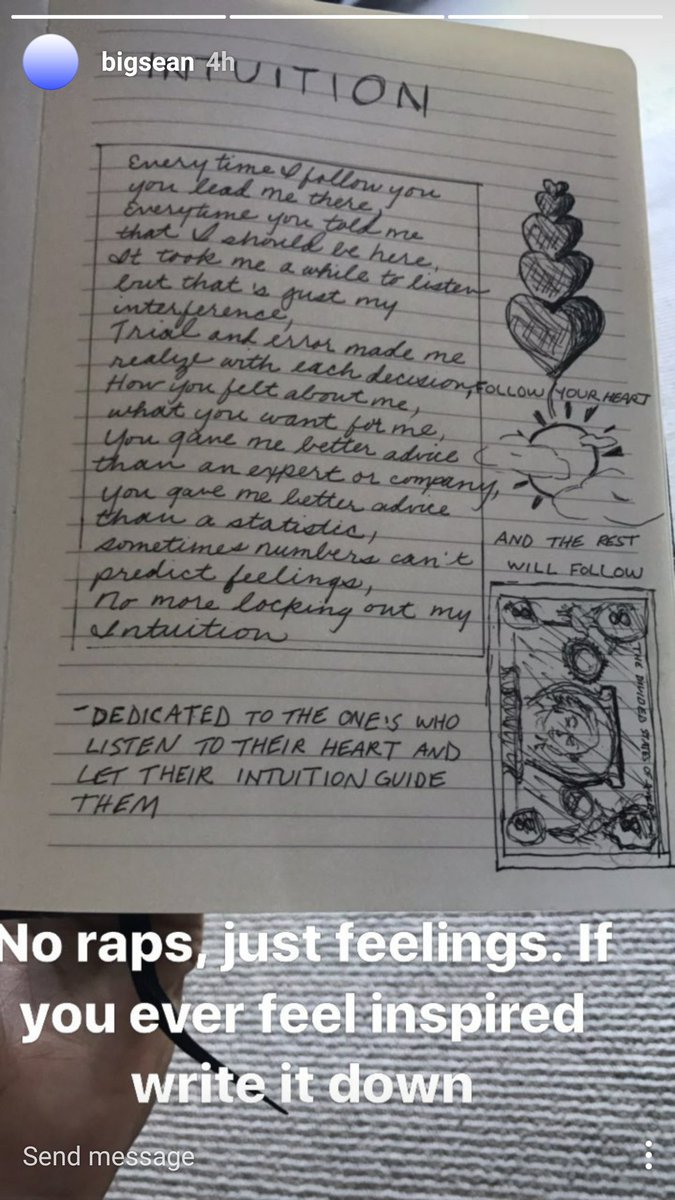 bigsean 4h
INTUITION
Everytime I follow you
you lead me there,
Everytime you told me
that I should be here,
It took me a while to listen
but that is just my
interference,
Trial and error made me
realize with each decision,
How you felt about me,
what you want for me,
You gave me better advice
than an expert or company,
you gave me better advice
than a statistic,
sometimes numbers can't
predict feelings,
No more locking out my
Intuition
FOLLOW YOUR HEART
AND THE REST
WILL FOLLOW
THE DIVIDED STATES OF
-DEDICATED TO THE ONE'S WHO
LISTEN TO THEIR HEART AND
LET THEIR INTUITION GUIDE
THEM
No raps, just feelings. If
you ever feel inspired
write it down
Send message